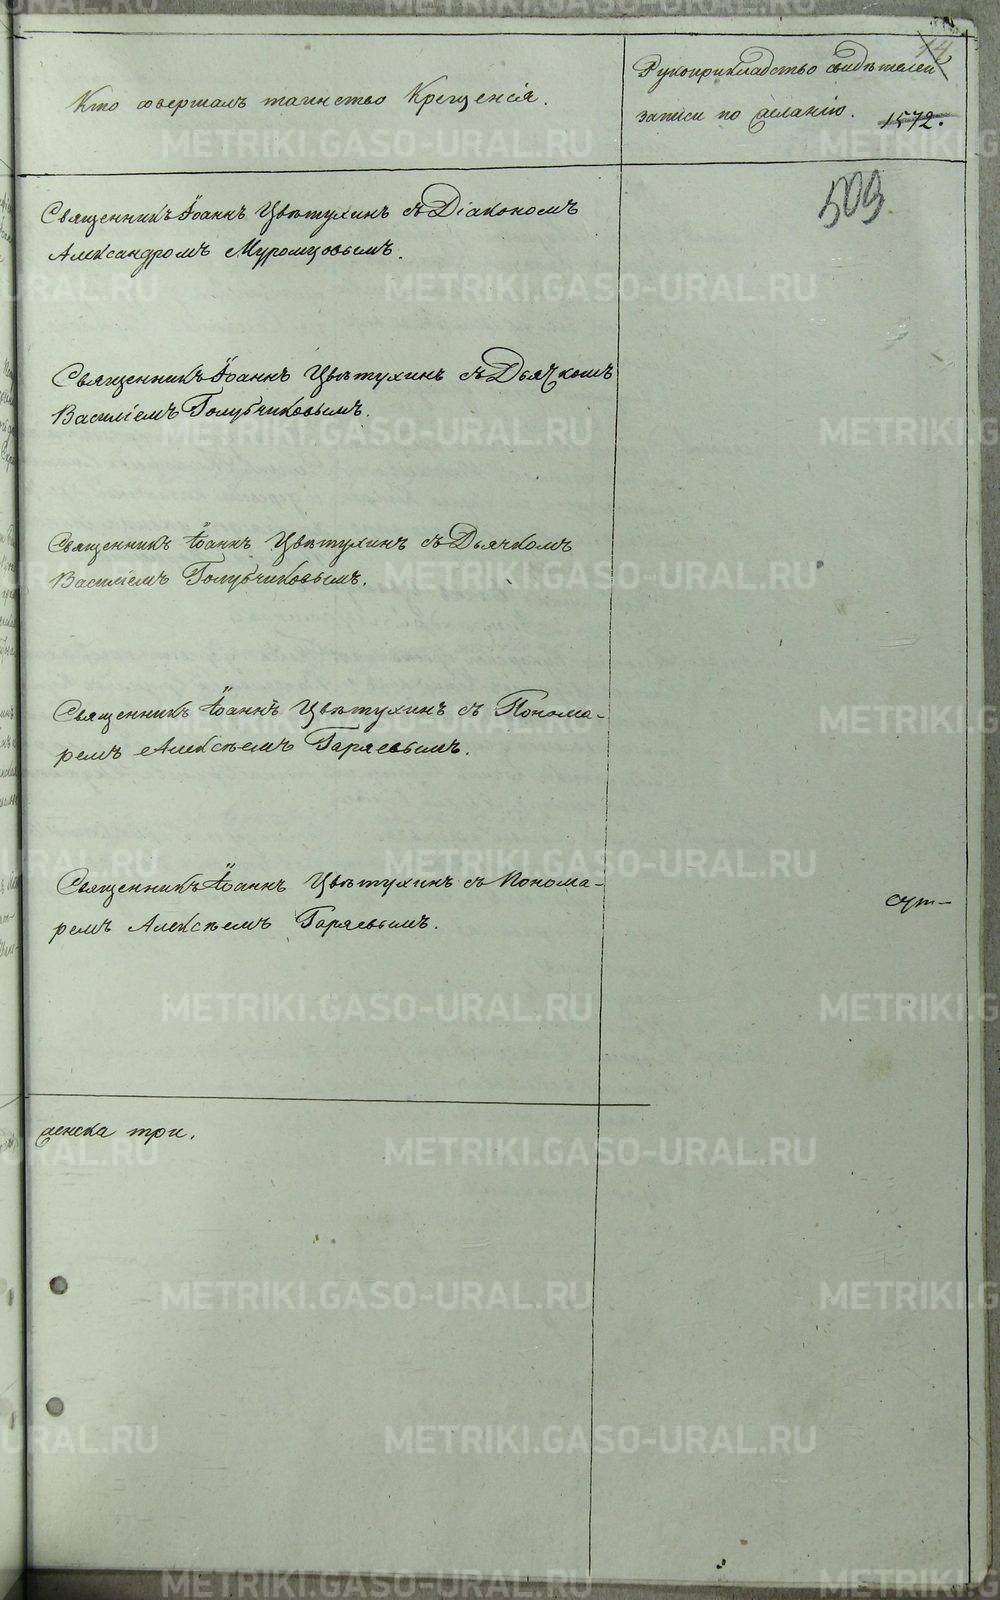 14
Кто совершалъ таинство Крещенія.
Рукоприкладство свидѣтелей
записи по желанію.
1572.
509
Священникъ Іоаннъ Цвѣтухинъ съ Діакономъ
Александромъ Муромцовымъ.
Священникъ Іоаннъ Цвѣтухинъ съ Дьячкомъ
Василіемъ Голубчиковымъ.
Священникъ Іоаннъ Цвѣтухинъ съ Дьячкомъ
Василіемъ Голубчиковымъ.
Священникъ Іоаннъ Цвѣтухинъ съ Понома-
ремъ Алексѣемъ Гаряевымъ.
Священникъ Іоаннъ Цвѣтухинъ съ Понома-
ремъ Алексѣемъ Гаряевымъ.
женска три.
METRIKI.GASO-URAL.RU